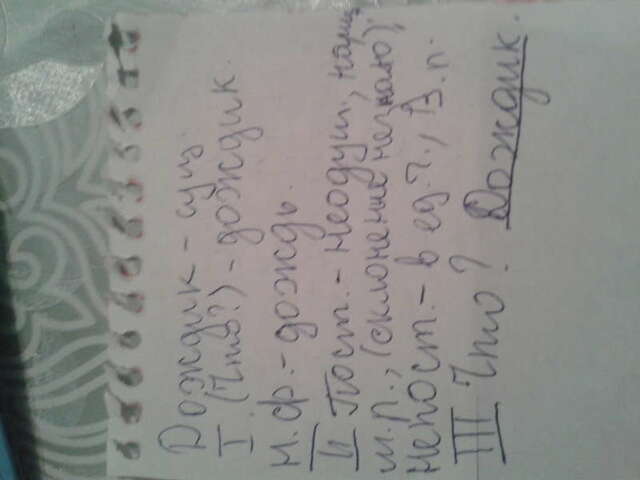 Дождик - сущ.
I (Что?) - дождик.
Н.ф. - дождь.
II Пост. - неодуш., нариц.
м.р., (склонение не знаю).
непост. - в ед.ч., В.п.
III Что? Дождик.